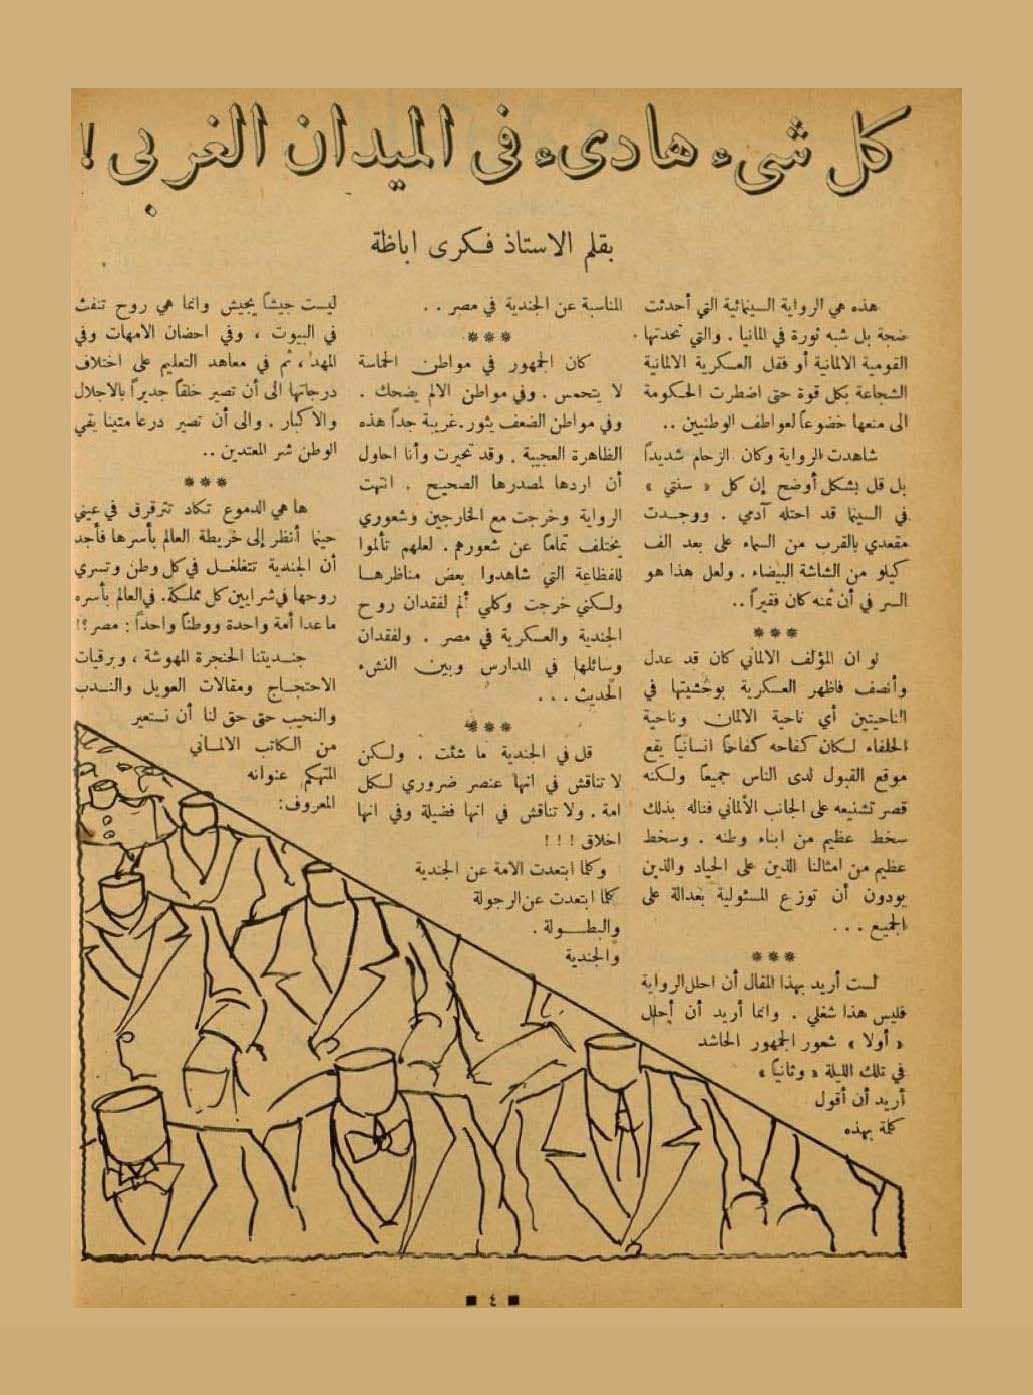 كل شيء هادىء في الميدان الغربي !
بقلم الاستاذ فكرى اباظة
هذه هي الرواية السينمائية التي أحدثت
ضجة بل شبه ثورة في المانيا . والتي تحدتها
القومية الالمانية أو فقل العسكرية الالمانية
الشجاعة بكل قوة حتى اضطرت الحكومة
الى منعها خضوعاً لعواطف الوطنيين ..
شاهدت الرواية وكان الزحام شديداً
بل قل بشكل أوضح إن كل « سنتي »
في السينما قد احتله آدمي . ووجدت
مقعدي بالقرب من السماء على بعد الف
كيلو من الشاشة البيضاء . ولعل هذا هو
السر في أن ثمنه كان فقيراً ..
***
لو ان المؤلف الالماني كان قد عدل
وأنصف فاظهر العسكرية بوحشيتها في
الناحيتين أي ناحية الالمان وناحية
الحلفاء لكان كفاحه كفاحاً انسانياً يقع
موقع القبول لدى الناس جميعاً ولكنه
قصر تشنيعه على الجانب الألماني فناله بذلك
سخط عظيم من ابناء وطنه . وسخط
عظيم من امثالنا الذين على الحياد والذين
يودون أن توزع المسئولية بعدالة على
الجميع ...
***
لست أريد بهذا المقال أن احلل الرواية
فليس هذا شغلي . وانما أريد أن أحلل
« أولا » شعور الجمهور الحاشد
في تلك الليلة « وثانياً »
أريد أن أقول
كلمة بهذه
المناسبة عن الجندية في مصر ..
***
كان الجمهور في مواطن الحماسة
لا يتحمس . وفي مواطن الالم يضحك .
وفي مواطن الضعف يثور . غريبة جداً هذه
الظاهرة العجيبة . وقد تحيرت وأنا احاول
أن اردها لمصدرها الصحيح . انتهت
الرواية وخرجت مع الخارجين وشعوري
يختلف تماماً عن شعورهم . لعلهم تألموا
للفظاعة التي شاهدوا بعض مناظرها
ولكني خرجت وكلي ألم لفقدان روح
الجندية والعسكرية في مصر . ولفقدان
وسائلها في المدارس وبين النشء
الحديث ...
***
قل في الجندية ما شئت . ولكن
لا تناقش في انها عنصر ضروري لكل
امة . ولا تناقش في انها فضيلة وفي انها
اخلاق ! ! !
وكلما ابتعدت الامة عن الجندية
كلما ابتعدت عن الرجولة
والبطولة .
والجندية
ليست جيشاً يجيش وانما هي روح تنفث
في البيوت ، وفي احضان الامهات وفي
المهد ، ثم في معاهد التعليم على اختلاف
درجاتها الى أن تصير خلقاً جديراً بالاجلال
والاكبار . والى أن تصير درعا متينا يقي
الوطن شر المعتدين ..
***
ها هي الدموع تكاد تترقرق في عيني
حينما أنظر إلى خريطة العالم بأسرها فأجد
أن الجندية تتغلغل في كل وطن وتسري
روحها في شرايين كل مملكة . في العالم بأسره
ما عدا أمة واحدة ووطناً واحداً : مصر ؟!
جنديتنا الحنجرة المهوشة ، وبرقيات
الاحتجاج ومقالات العويل والندب
والنحيب حتى حق لنا أن نستعير
من الكاتب الالماني
المتهكم عنوانه
المعروف:
٤